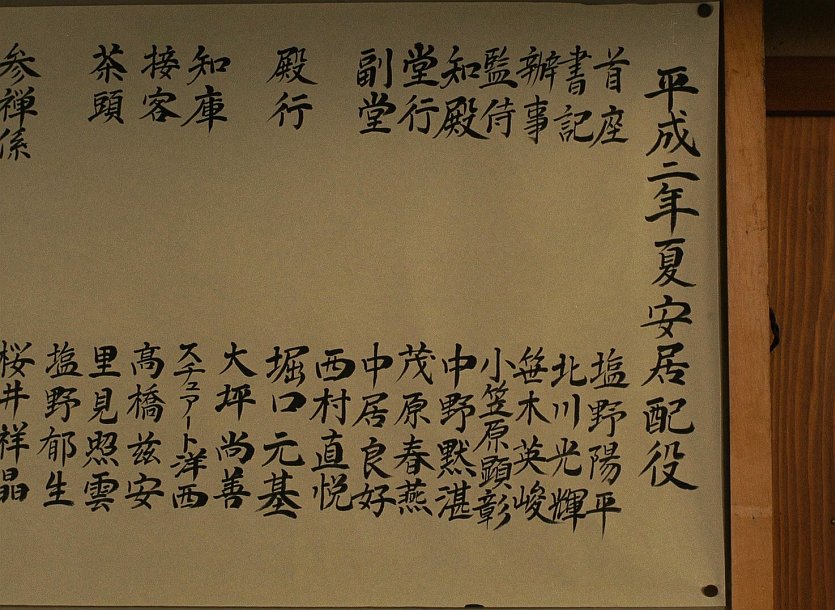 平成二年夏安居配役
首座 塩野陽平
書記 北川光輝
辦事 笹木英峻
監侍 小笠原顕彰
知殿 中野黙湛
堂行 茂原春燕
副堂 中居良好
西村直悦
殿行 堀口元基
知庫 大坪尚善
接客 スチュアート洋西
高橋兹安
茶頭 里見照雲
塩野郁生
参禅係 桜井祥晶